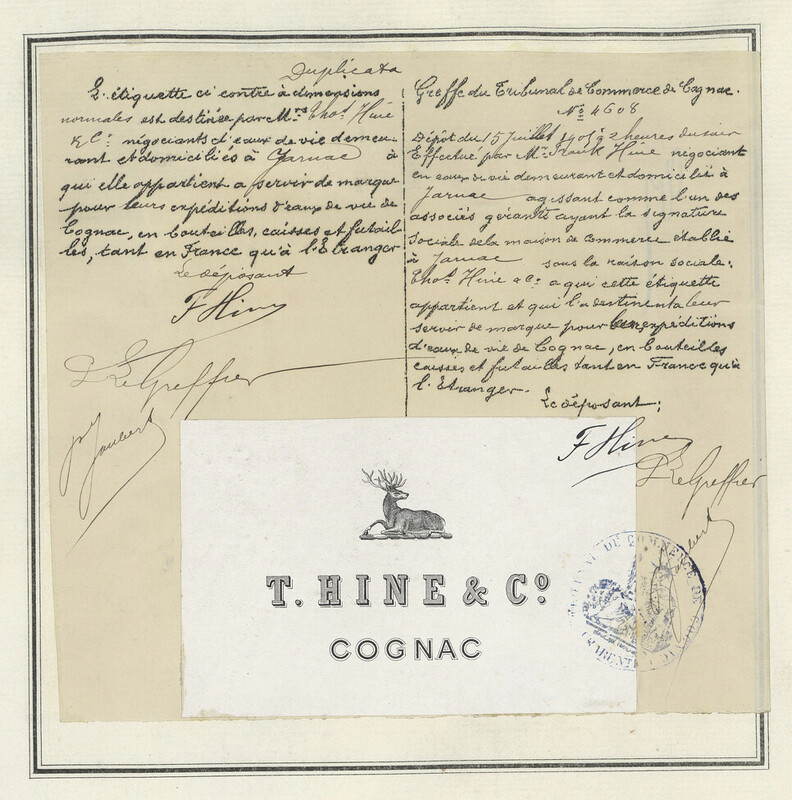 Duplicata
L'étiquette ci contre à dimensions
normales est destinée par Mrs Thos Hine
& Co négociants d'eaux de vie demeu-
rant et domiciliés à Jarnac à
qui elle appartient a servir de marque
pour leurs expéditions d'eaux de vie de
Cognac, en bouteilles, caisses et futail-
les, tant en France qu'à l'Etranger
Le déposant
F Hine
Le Greffier
Joubert
Greffe du Tribunal de Commerce de Cognac.
No 4608
Dépôt du 15 Juillet 2 heures du soir
Effectué par Mr Frank Hine négociant
en eaux de vie demeurant et domicilié à
Jarnac agissant comme l'un des
associés gérants ayant la signature
sociale de la maison de commerce établie
à Jarnac sous la raison sociale:
Thos Hine & Co a qui cette étiquette
appartient et qui la destinent a leur
servir de marque pour leurs expéditions
d'eaux de vie de Cognac, en bouteilles
caisses et futailles tant en France qu'à
l'Etranger.
Le déposant:
F Hine
Le Greffier
Joubert
T. HINE & Co
COGNAC
TRIBUNAL DE COMMERCE DE
CHARENTE